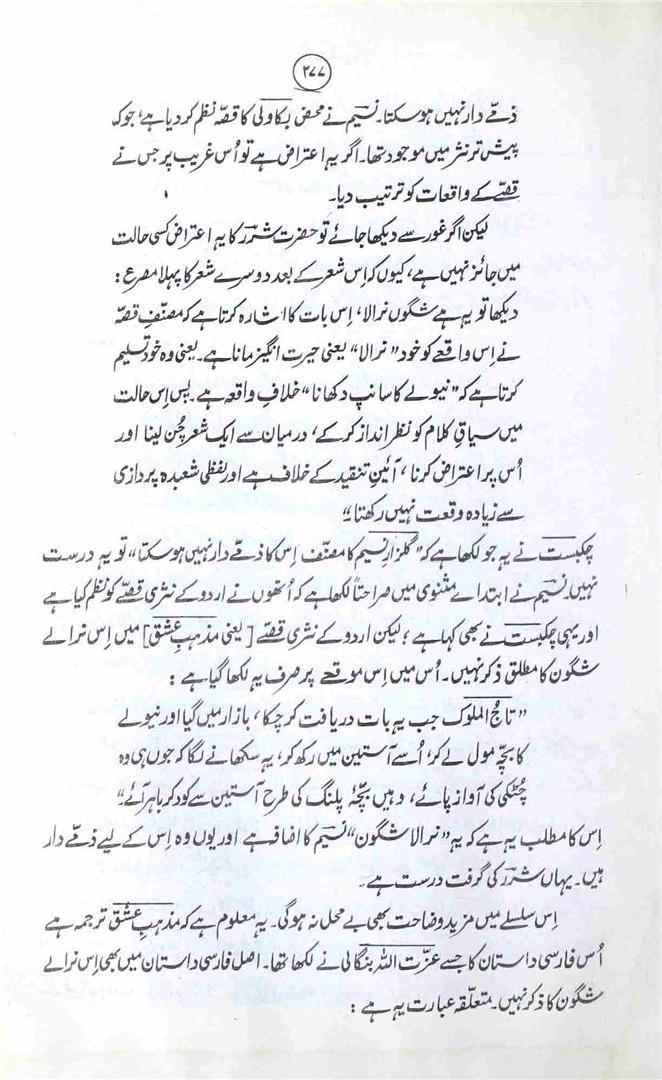 ۲۷۷
ذمّے دار نہیں ہو سکتا۔ نسیمؔ نے محض بکاولی کا قصّہ نظم کر دیا ہے، جو کہ
پیش تر نثر میں موجود تھا۔ اگر یہ اعتراض ہے تو اُس غریب پر جس نے
قصّے کے واقعات کو ترتیب دیا۔
لیکن اگر غور سے دیکھا جائے تو حضرت شررؔ کا یہ اعتراض کسی حالت
میں جائز نہیں ہے، کیوں کہ اِس شعر کے بعد دوسرے شعر کا پہلا مصرع :
دیکھا تو یہ ہے شگوں نرالا، اِس بات کا اشارہ کرتا ہے کہ مصنّفِ قصّہ
نے اِس واقعے کو خود "نرالا" یعنی حیرت انگیز مانا ہے۔ یعنی وہ خود تسلیم
کرتا ہے کہ "نیولے کا سانپ دکھانا" خلافِ واقعہ ہے۔ بس اِس حالت
میں سیاقِ کلام کو نظر انداز کر کے، درمیان سے ایک شعر چُن لینا اور
اُس پر اعتراض کرنا، آئینِ تنقید کے خلاف ہے اور لفظی شعبدہ پردازی
سے زیادہ وقعت نہیں رکھتا۔"
چکبستؔ نے یہ جو لکھا ہے کہ "گلزارِ نسیم کا مصنّف اِس کا ذمّے دار نہیں ہو سکتا" تو یہ درست
نہیں۔ نسیمؔ نے ابتداے مثنوی میں صراحتاً لکھا ہے کہ اُنھوں نے اردو کے نثری قصّے کو نظم کیا ہے
اور یہی چکبستؔ نے بھی کہا ہے ؛ لیکن اردو کے نثری قصّے [یعنی مذہبِ عشق] میں اِس نرالے
شگون کا مطلق ذکر نہیں۔ اُس میں اِس موقعے پر صرف یہ لکھا گیا ہے :
"تاج الملوک جب یہ بات دریافت کر چکا، بازار میں گیا اور نیولے
کا بچّہ مول لے کر، اُسے آستین میں رکھ کر، یہ سکھانے لگا کہ جوں ہی وہ
چُٹکی کی آواز پائے، وہیں بچّۂ پلنگ کی طرح آستین سے کود کر باہر آئے"
اِس کا مطلب یہ ہے کہ یہ "نرالا شگون" نسیمؔ کا اضافہ ہے اور یوں وہ اِس کے لیے ذمّے دار
ہیں۔ یہاں شررؔ کی گرفت درست ہے۔
اِس سلسلے میں مزید وضاحت بھی بے محل نہ ہوگی۔ یہ معلوم ہے کہ مذہبِ عشق ترجمہ ہے
اُس فارسی داستان کا جسے عزّت اللہ بنگالی نے لکھا تھا۔ اصل فارسی داستان میں بھی اِس نرالے
شگون کا ذکر نہیں۔ متعلّقہ عبارت یہ ہے :